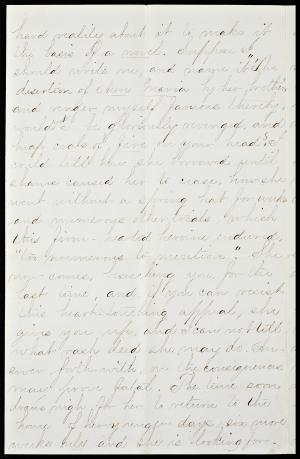 hard reality about it to make it
the basis of a novel. Suppose I
should write one, and name it "The
desertion of Maria by her brother"
and render myself famous thereby,
wouldn't I be gloriously revenged, and
heap coals of fire on your head? I
could tell how she mourned until
shame caused her to cease, how she
went without a spring hat for weeks
and numerous other trials which
this firm-hearted heroine endured,
"too numerous to mention." She
now comes, beseeching you, for the
last time, and if you can resist
this heart-touching appeal, she
gives you up, and I can not tell
what rash deed she may do. An-
swer forthwith, or the consequences
may prove fatal. The time soon
draws nigh for her to return to the
home of her younger days, six more
weeks and she is looking for-